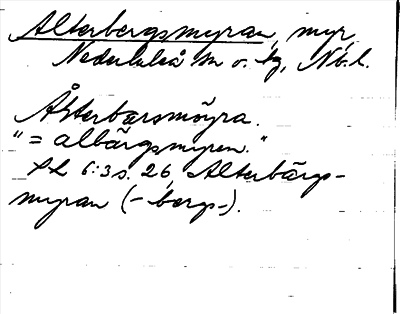 Alterbergsmyran, myr,
Nederluleå sn o. tg, Nb. l.
Åłterbarsmöyra.
"= albärgsmyren."
PL 6:3 s. 26, Alterbärgs-
myran (-bergs-).